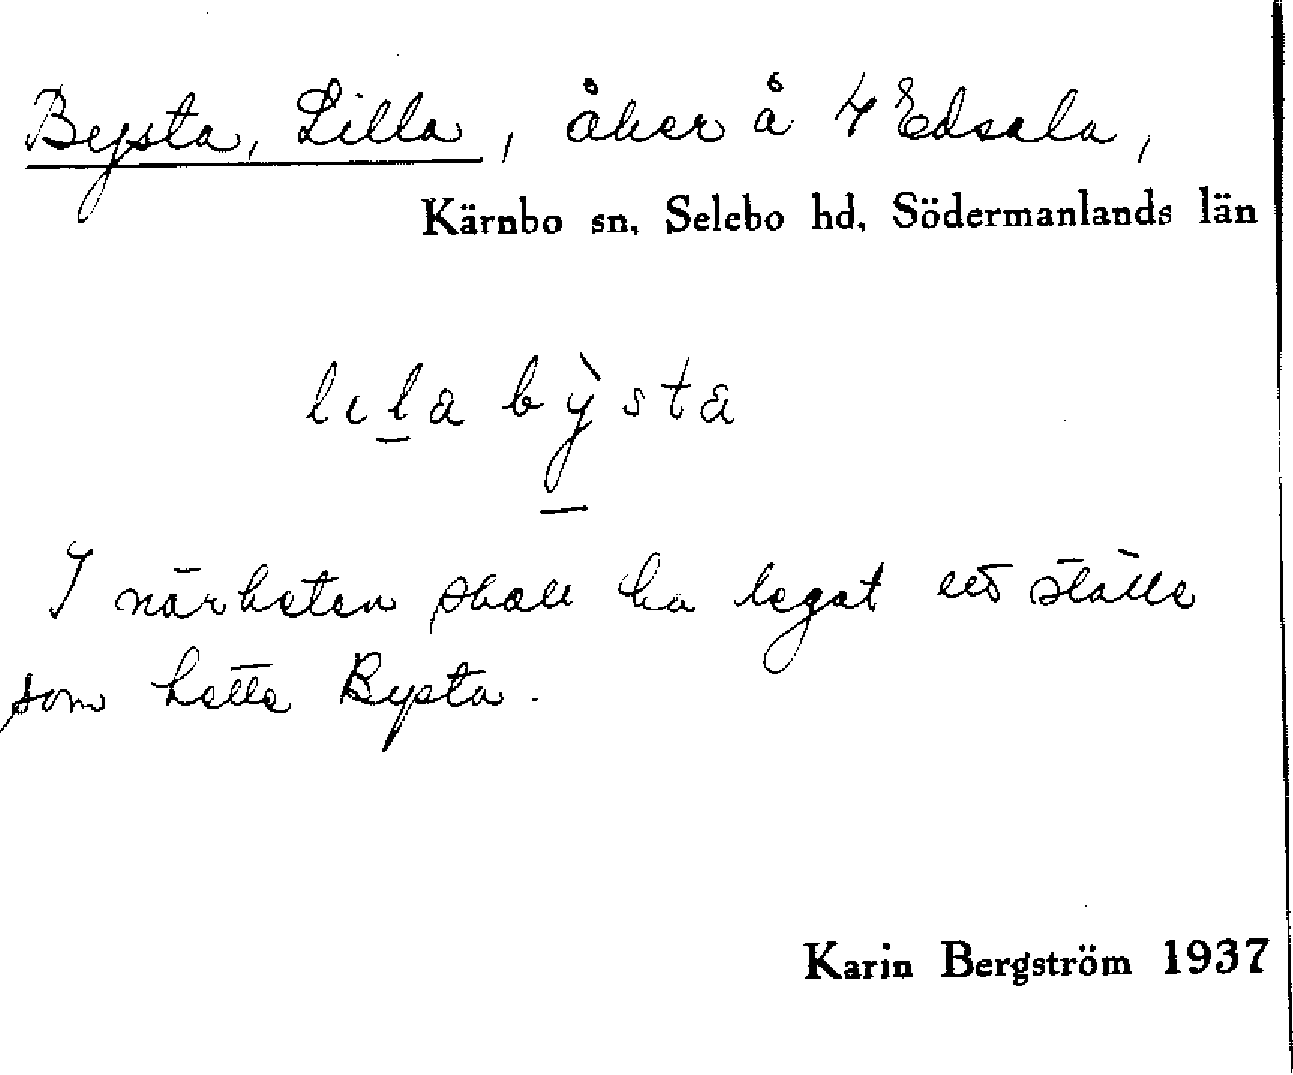 Bysta, Lilla, åker å 4 Edsala,
Kärnbo sn, Selebo hd, Södermanlands län
lıla bỳsta
I närheten skall ha legat ett ställe
som hette Bysta.
Karin Bergström 1937